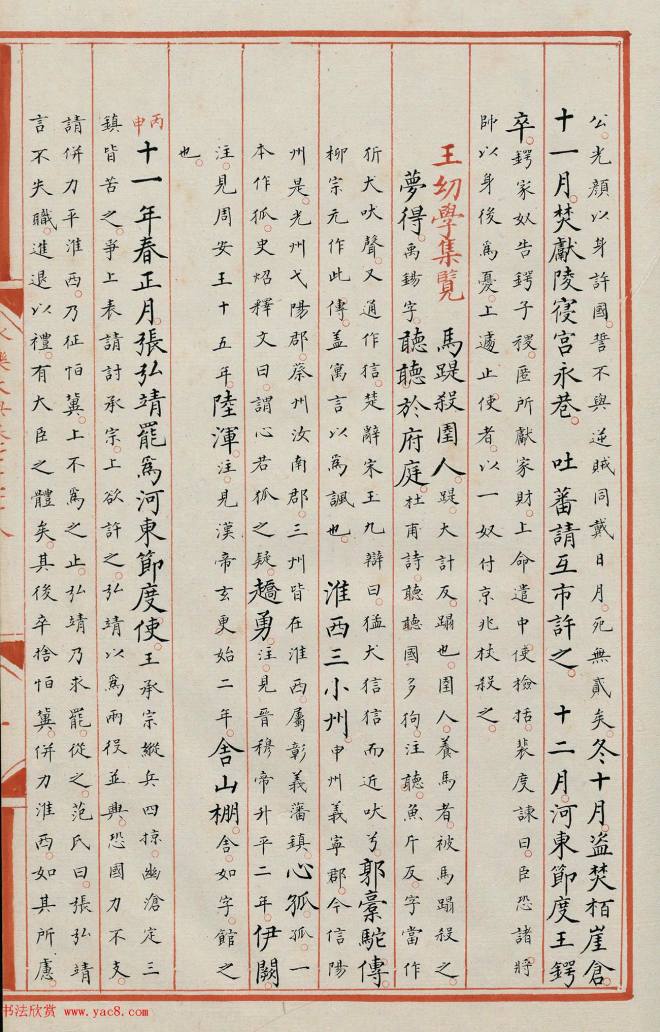 公光顏以身許國誓不與逆賊同戴日月死無貳矣冬十月盜焚栢崖倉
十一月焚獻陵寑宮永巷 吐蕃請互市許之 十二月河東節度王鍔
卒鍔家奴告鍔子稷匿所獻家財上命遣中使檢括裴度諫曰臣恐諸將
帥以身後爲憂上遽止使者以一奴付京兆杖殺之
王幼學集覽 馬踶殺圉人踶大計反蹋也圉人養馬者被馬蹋殺之
夢得禹錫字聽聽於府庭杜甫詩聽聽國多狗注聽魚斤反字當作
犾犬吠聲又通作狺楚辭宋玉九辯曰猛犬狺狺而近吠兮郭橐駝傳
柳宗元作此傳蓋寓言以爲諷也 淮西三小州申州義寧郡今信陽
州是光州弋陽郡蔡州汝南郡三州皆在淮西屬彰義藩鎮心孤孤一
本作狐史炤釋文曰謂心若狐之疑趫勇注見晉穆帝升平二年伊闕
注見周安王十五年陸渾注見漢帝玄更始二年舍山棚舍如字館之
也
丙申十一年春正月張弘靖罷爲河東節度使王承宗縱兵四掠幽滄定三
鎮皆苦之爭上表請討承宗上欲許之弘靖以爲兩役並興恐國力不支
請併力平淮西乃征恒冀上不爲之止弘靖乃求罷從之范氏曰張弘靖
言不失職進退以禮有大臣之體矣其後卒捨恒冀併力淮西如其所慮
书法欣赏 www.yac8.com